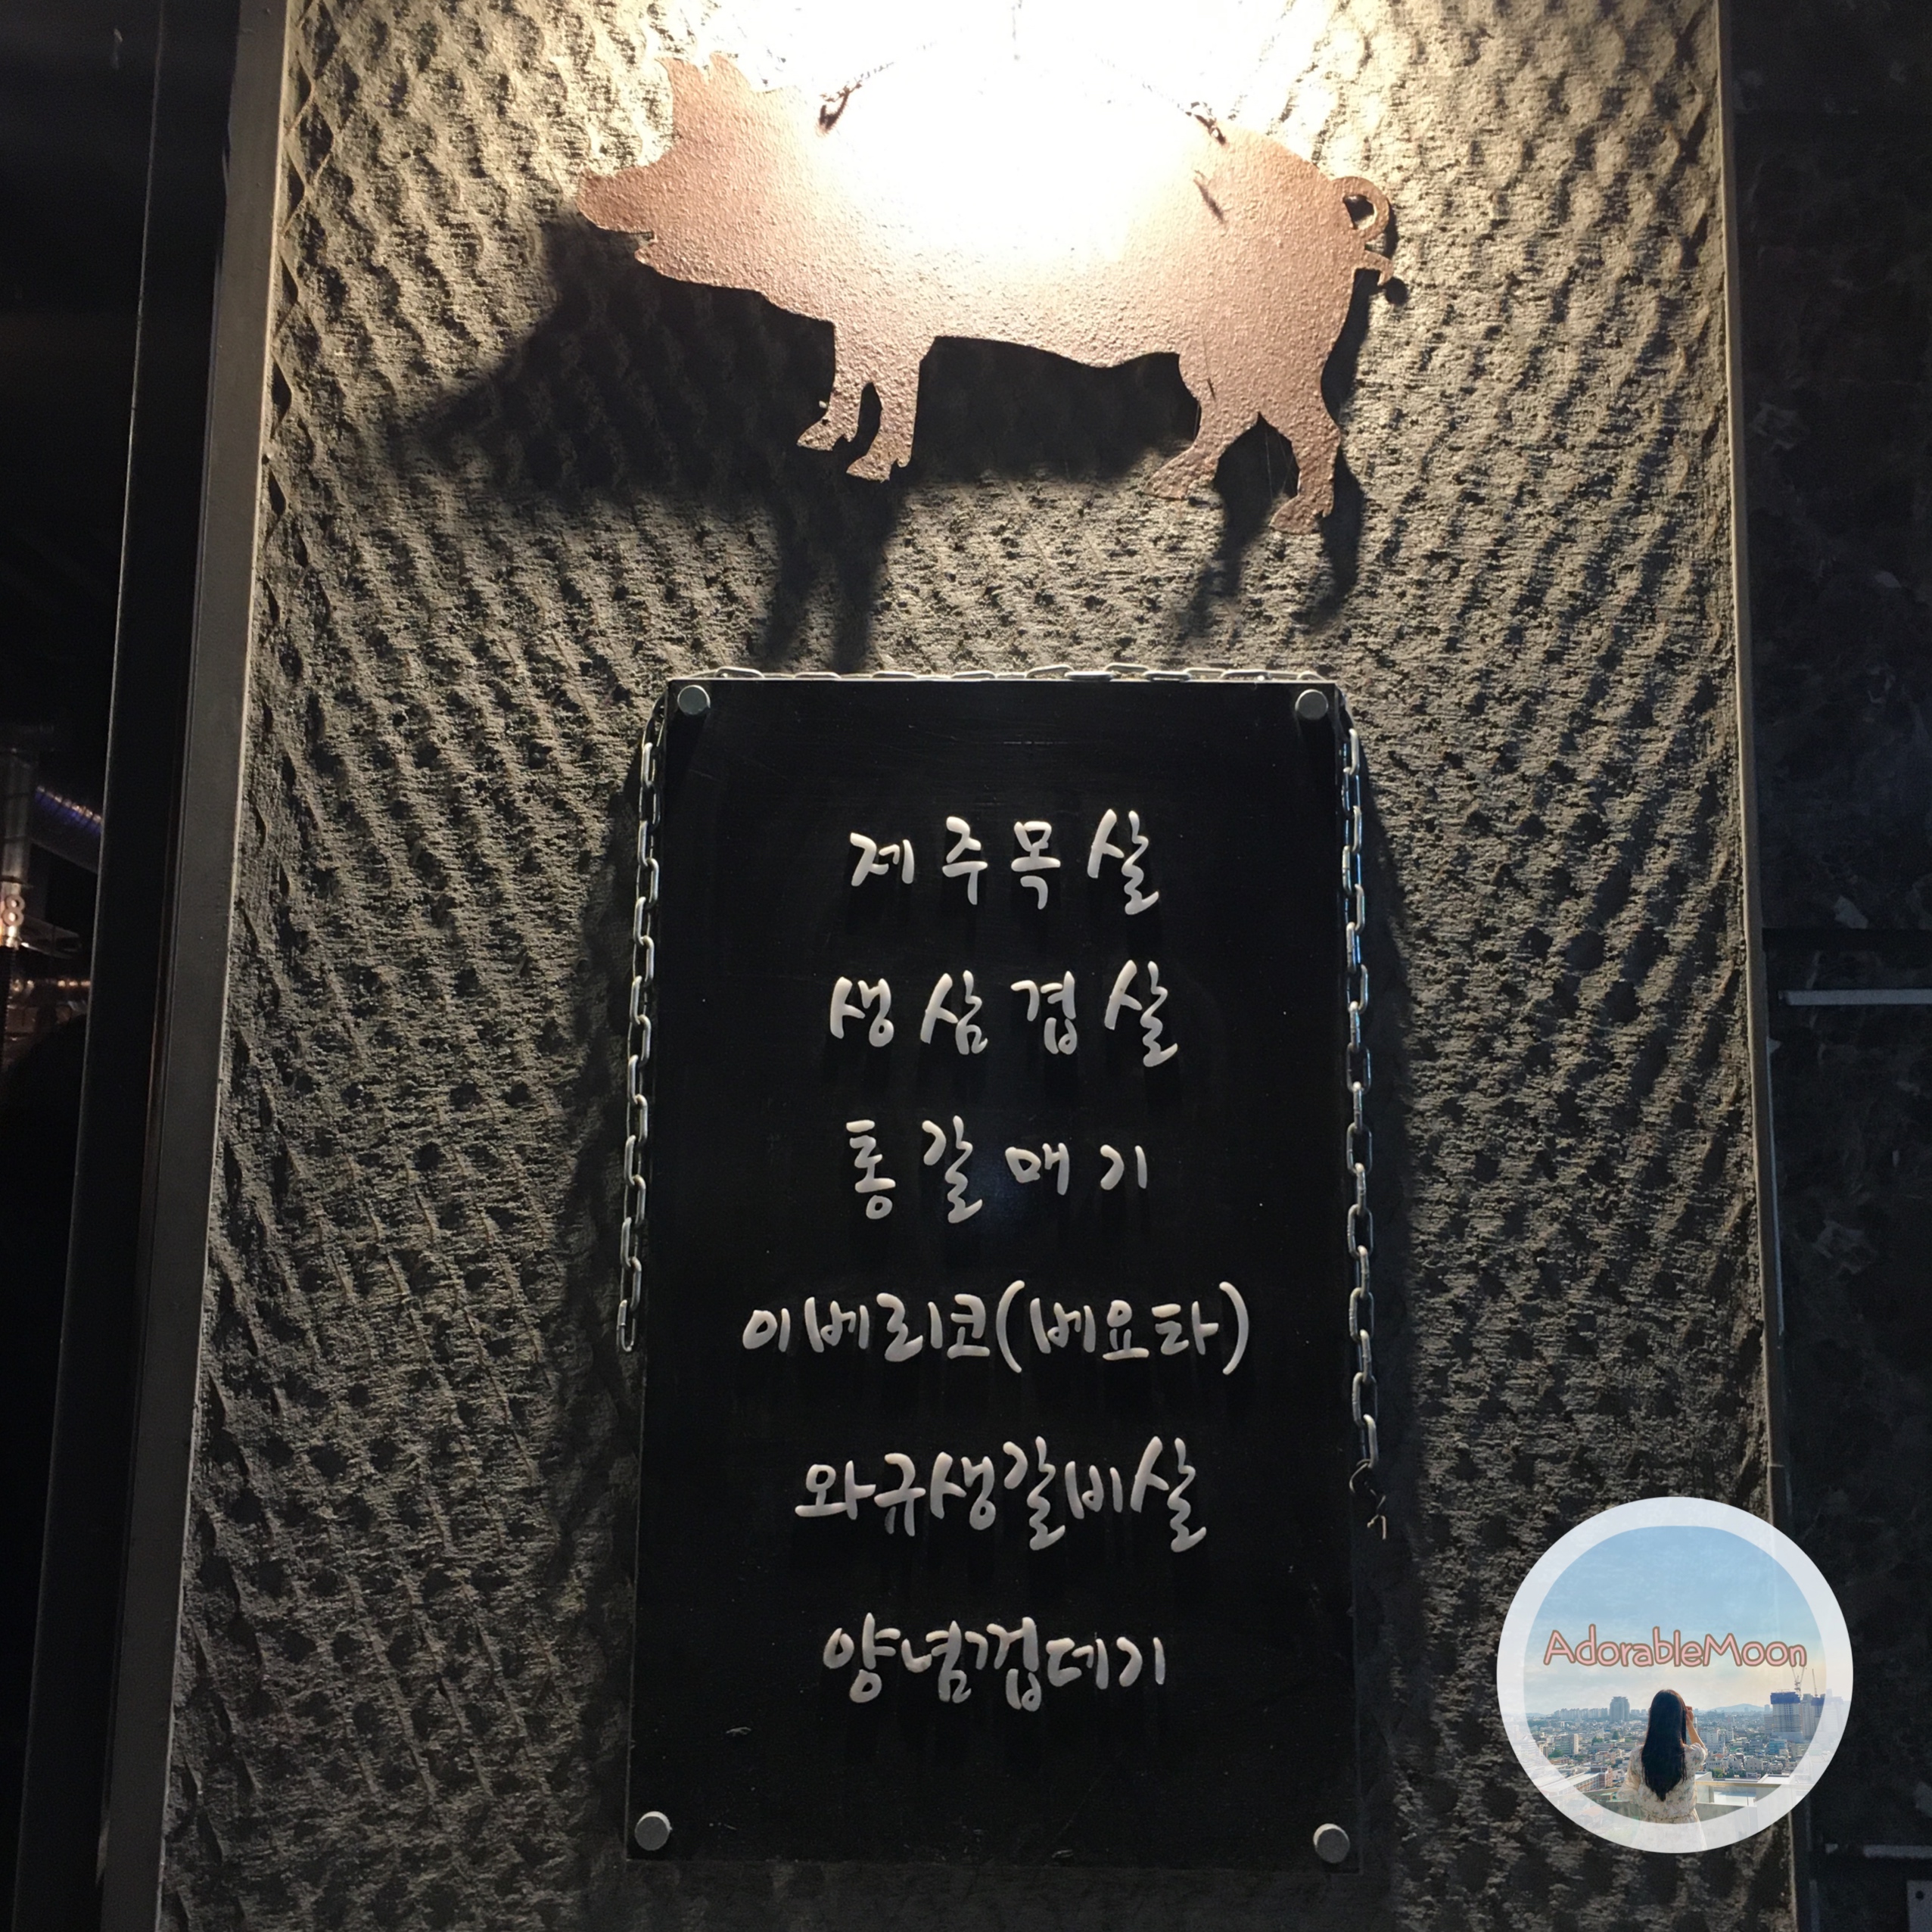 제주목살
생삼겹살
통갈매기
이베리코(베요타)
와규생갈비살
양념껍데기
AdorableMoon